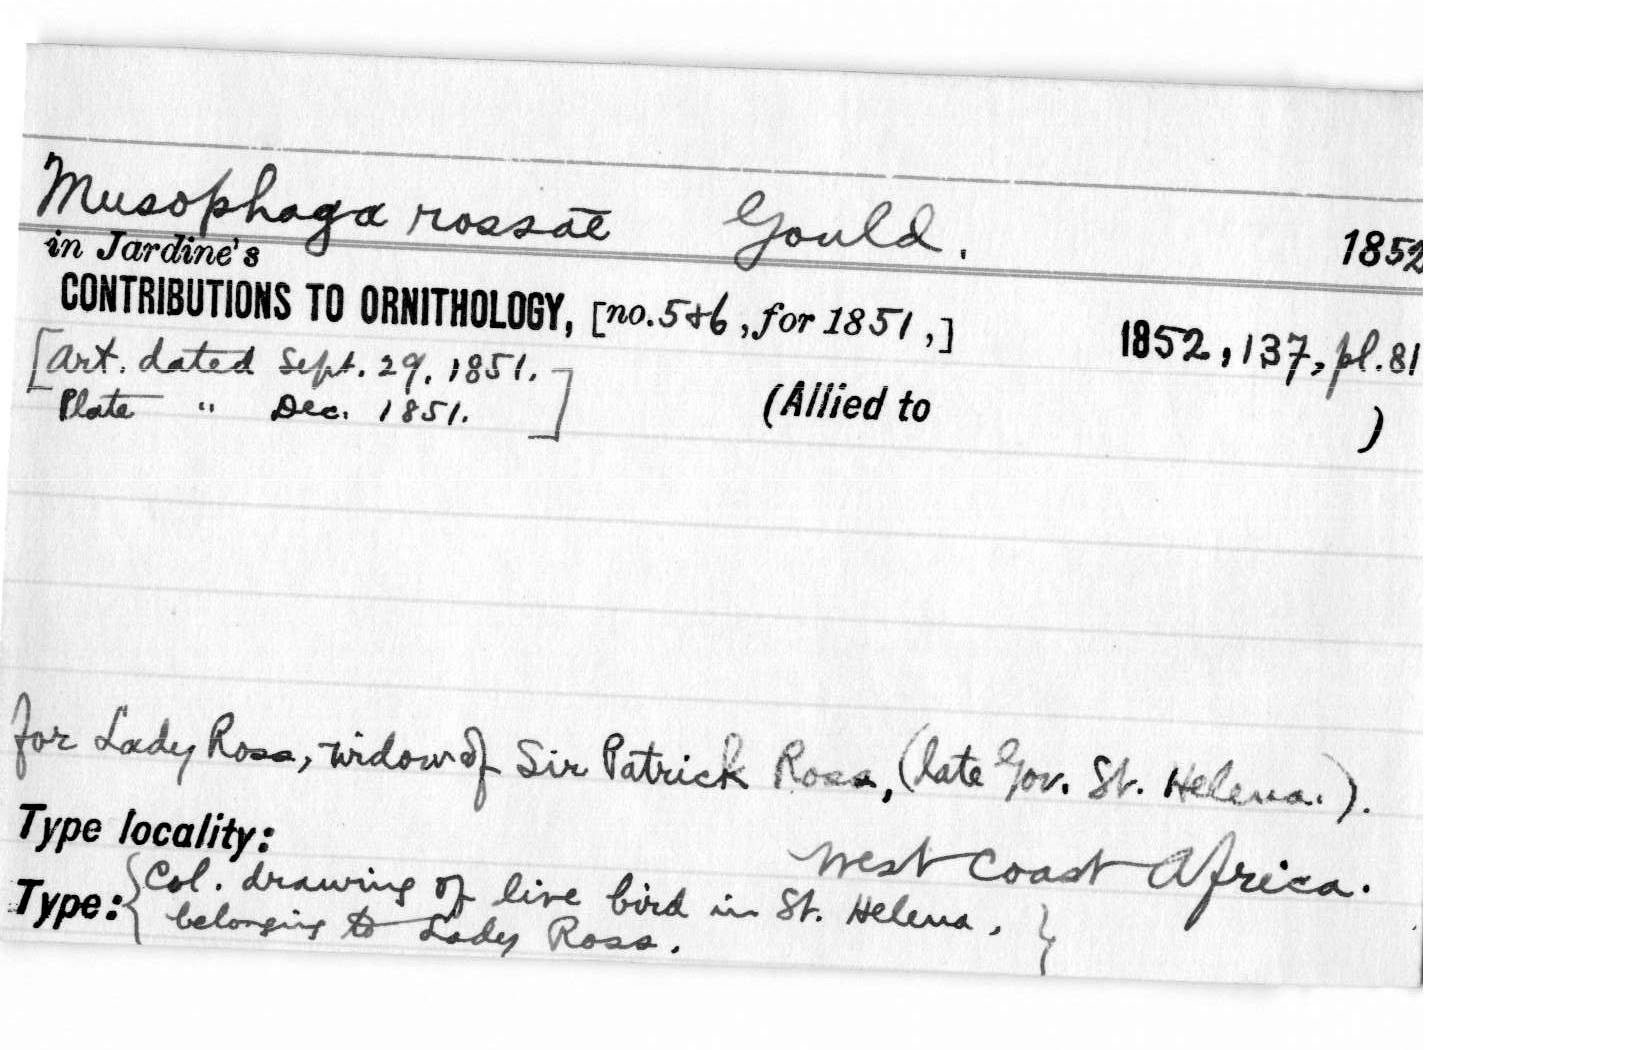 Musophaga rossae Gould. 1852
in Jardine's
CONTRIBUTIONS TO ORNITHOLOGY, [no. 5+6, for 1851,] 1852, 137, pl. 81
[Art. dated Sept. 29, 1851.
Plate " Dec. 1851.]
(Allied to )
for Lady Ross, widow of Sir Patrick Ross, (late Gov. St. Helena.).
Type locality: West Coast Africa.
Type: {Col. drawing of live bird in St. Helena,
belonging to Lady Ross.}